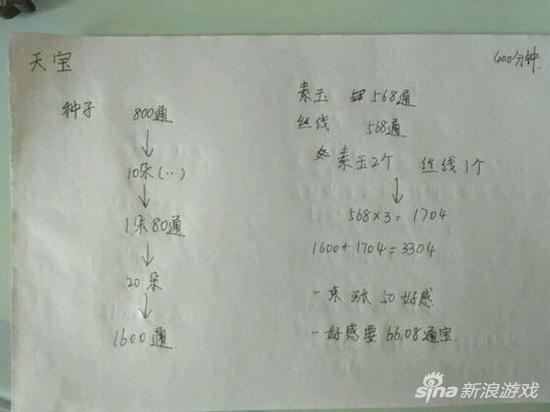 天宝
400分钟
种子 800通
↓
10朵(..)
↓
1朵80通
↓
20朵
↓
1600通
素玉 568通
丝线 568通
素玉2个 丝线1个
↓
568×3=1704
1600+1704=3304
一束 涨 50好感
一好感要 66.08通宝
sina 新浪游戏